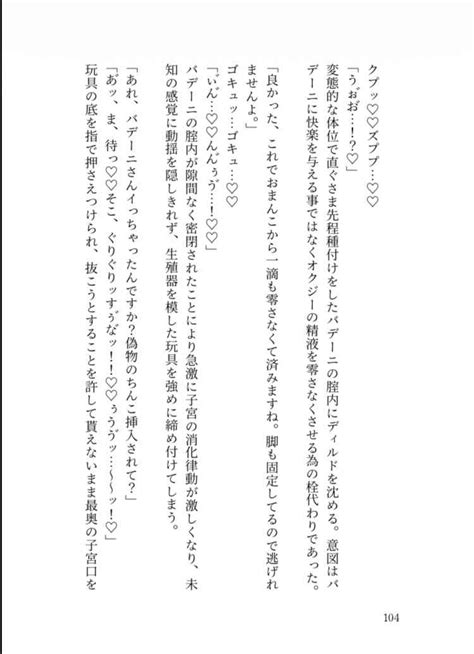 クプッ♡♡ズププ…♡♡
「うぉお゙…！？♡」
変態的な体位で直ぐさま先程種付けをしたバデーニの腟内にディルドを沈める。意図はバ
デーニに快楽を与える事ではなくオクジーの精液を零さなくさせる為の栓代わりであった。
「良かった、これでおまんこから一滴も零さなくて済みますね。脚も固定してるので逃げれ
ませんよ。」
ゴキュッ…ゴキュ…♡♡
「い゙ん゙…♡♡んん゙ぅゔ…！♡♡」
バデーニの腟内が隙間なく密閉されたことにより急激に子宮の消化律動が激しくなり、未
知の感覚に動揺を隠しきれず、生殖器を模した玩具を強めに締め付けてしまう。
「あれ、バデーニさんイっちゃったんですか？偽物のちんこ挿入されて？」
「お゙ッ、ま、待っ♡♡そこ、ぐりぐりッすゔな゙ッ！！♡♡ぅうゔッ…〜〜ッ！♡」
玩具の底を指で押さえつけられ、抜こうとすることを許して貰えないまま最奥の子宮口を
104